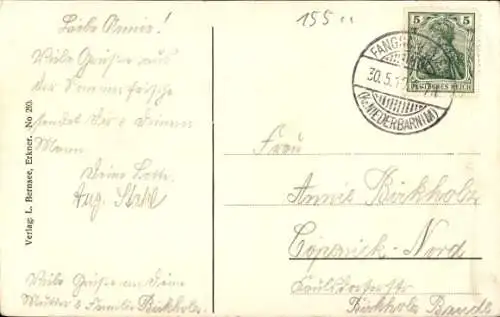 Liebe Annie!
155
5 5
DEUTSCHES REICH
FANG
30.5.1
(Kr. NIEDERBARNIM)
Viele Grüße aus
der Sommerfrische
sendet Dir & Deinem
Mann
Deine Lotte
Aug. Stahl
Viele Grüße an Deine
Mutter & Familie Birkholz.
Verlag: L. Bernsee, Erkner. No 20.
Frau
Annie Birkholz
Cöpenick-Nord
Birkholz